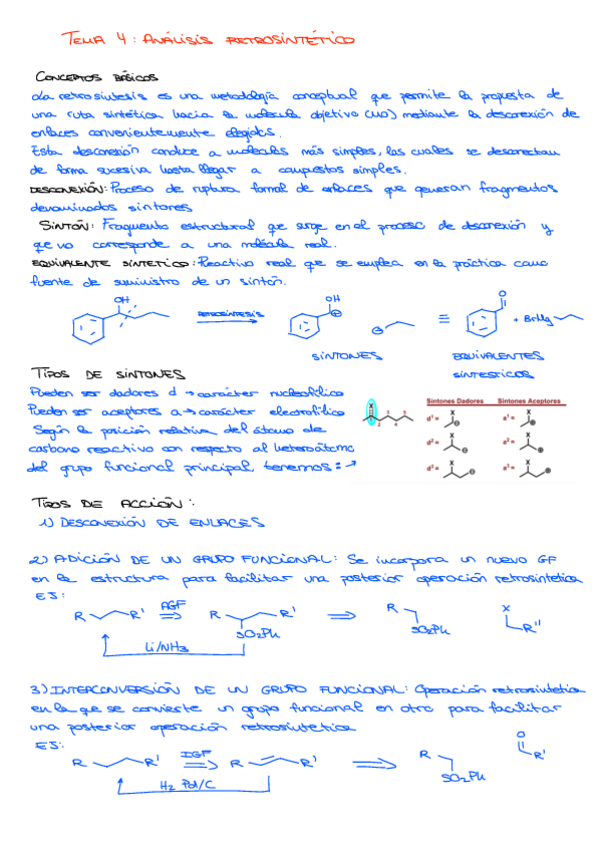 TEMA 4: ANÁLISIS RETROSINTÉTICO
CONCEPTOS BÁSICOS
La retrosintesis es una metodología conceptual que permite la propuesta de
una ruta sintética hacia la molécula objetivo (MO) mediante la desconexión de
enlaces convenientemente elegidos.
Esta desconexión conduce a moléculas más simples, las cuales se desconectan
de forma sucesiva hasta llegar a compuestos simples.
DESCONEXIÓN: Proceso de ruptura formal de enlaces que generan fragmentos
denominados sintones
SINTÓN: Fragmento estructural que surge en el proceso de desconexión y
que no corresponde a una molécula real.
EQUIVALENTE SINTETICO: Reactivo real que se emplea en la práctica como
fuente de suministro de un sintón.
OH RETROSÍNTESIS OH ⊕ ⊖ ≡ O + BrMg
SINTONES EQUIVALENTES
SINTESTICOS
TIPOS DE SINTONES
Pueden ser dadores d → carácter nucleofílico
Pueden ser aceptores a → carácter electrofílico
Según la posición relativa del átomo de
carbono reactivo con respecto al heteroátomo
del grupo funcional principal tenemos: →
X 1 2 3 4 5
Sintones Dadores Sintones Aceptores
d¹ = X ⊖ a¹ = X ⊕
d² = X ⊖ a² = X ⊕
d³ = X ⊖ a³ = X ⊕
TIPOS DE ACCIÓN:
1) DESCONEXIÓN DE ENLACES
2) ADICIÓN DE UN GRUPO FUNCIONAL: Se incorpora un nuevo GF
en la estructura para facilitar una posterior operación retrosintetica
EJ:
R R' AGF ⇒ R R' SO2Ph ⇒ R SO2Ph X R''
Li/NH3
3) INTERCONVERSIÓN DE UN GRUPO FUNCIONAL: Operación retrosintetica
en la que se convierte un grupo funcional en otro para facilitar
una posterior operación retrosintetica
EJ:
R R' IGF ⇒ R R' ⇒ R SO2Ph O R'
H2 Pd/C